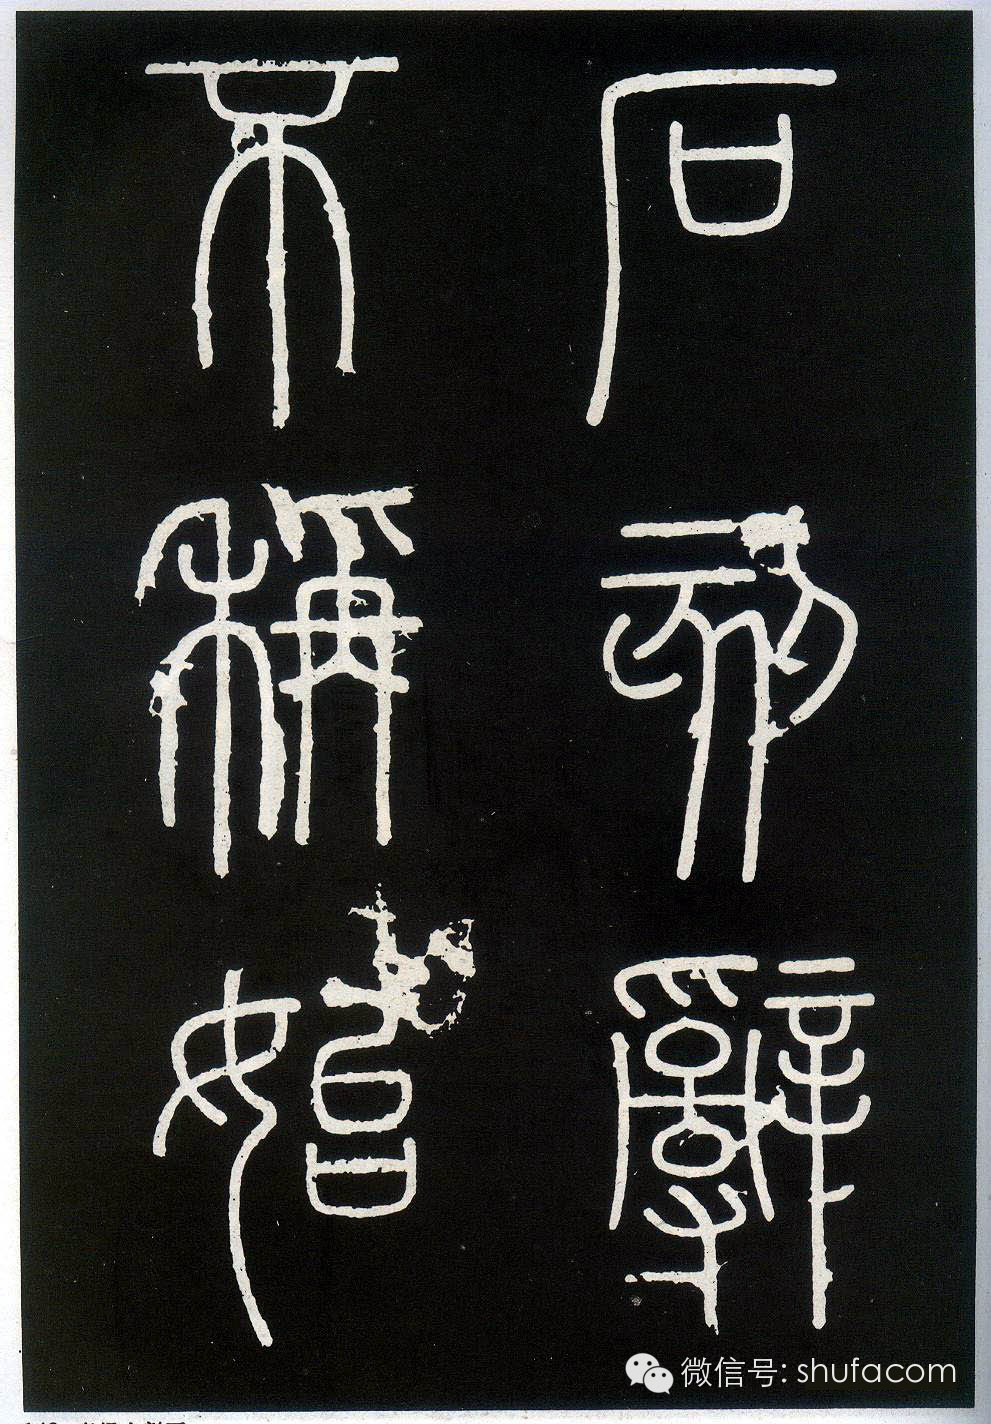 石刻辭
不稱始
微信号: shufacom